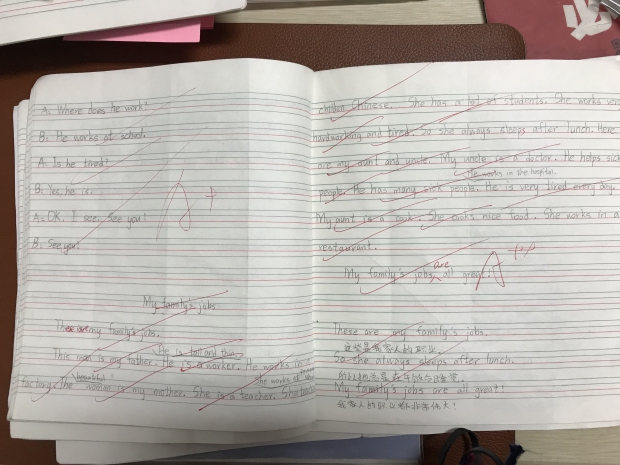 A: Where does he work?
B: He works at school.
A: Is he tired?
B: Yes he is.
A: OK. I see. See you!
B: See you!
A+
My family's jobs
These are my family's jobs.
He is tall and thin.
This man is my father. He is a worker. He works in
She works at
beautiful
factory. The woman is my mother. She is a teacher. She
Chinese. She has a lot of students. She works very
hardworking and tired. so she always sleeps after lunch. Here
are my aunt and uncle. My uncle is a doctor. He helps sick
He works in the hospital.
people. He has many sick people. He is very tired every day.
My aunt is a cook. She cooks nice food. She works in a
restaurant.
are
My family's jobs all great!
A+++
These are my family's jobs.
这些是我家人的职业。
So she always sleeps after lunch.
所以她总是在午饭后睡觉。
My family's jobs are all great!
我家人的职业都非常伟大!